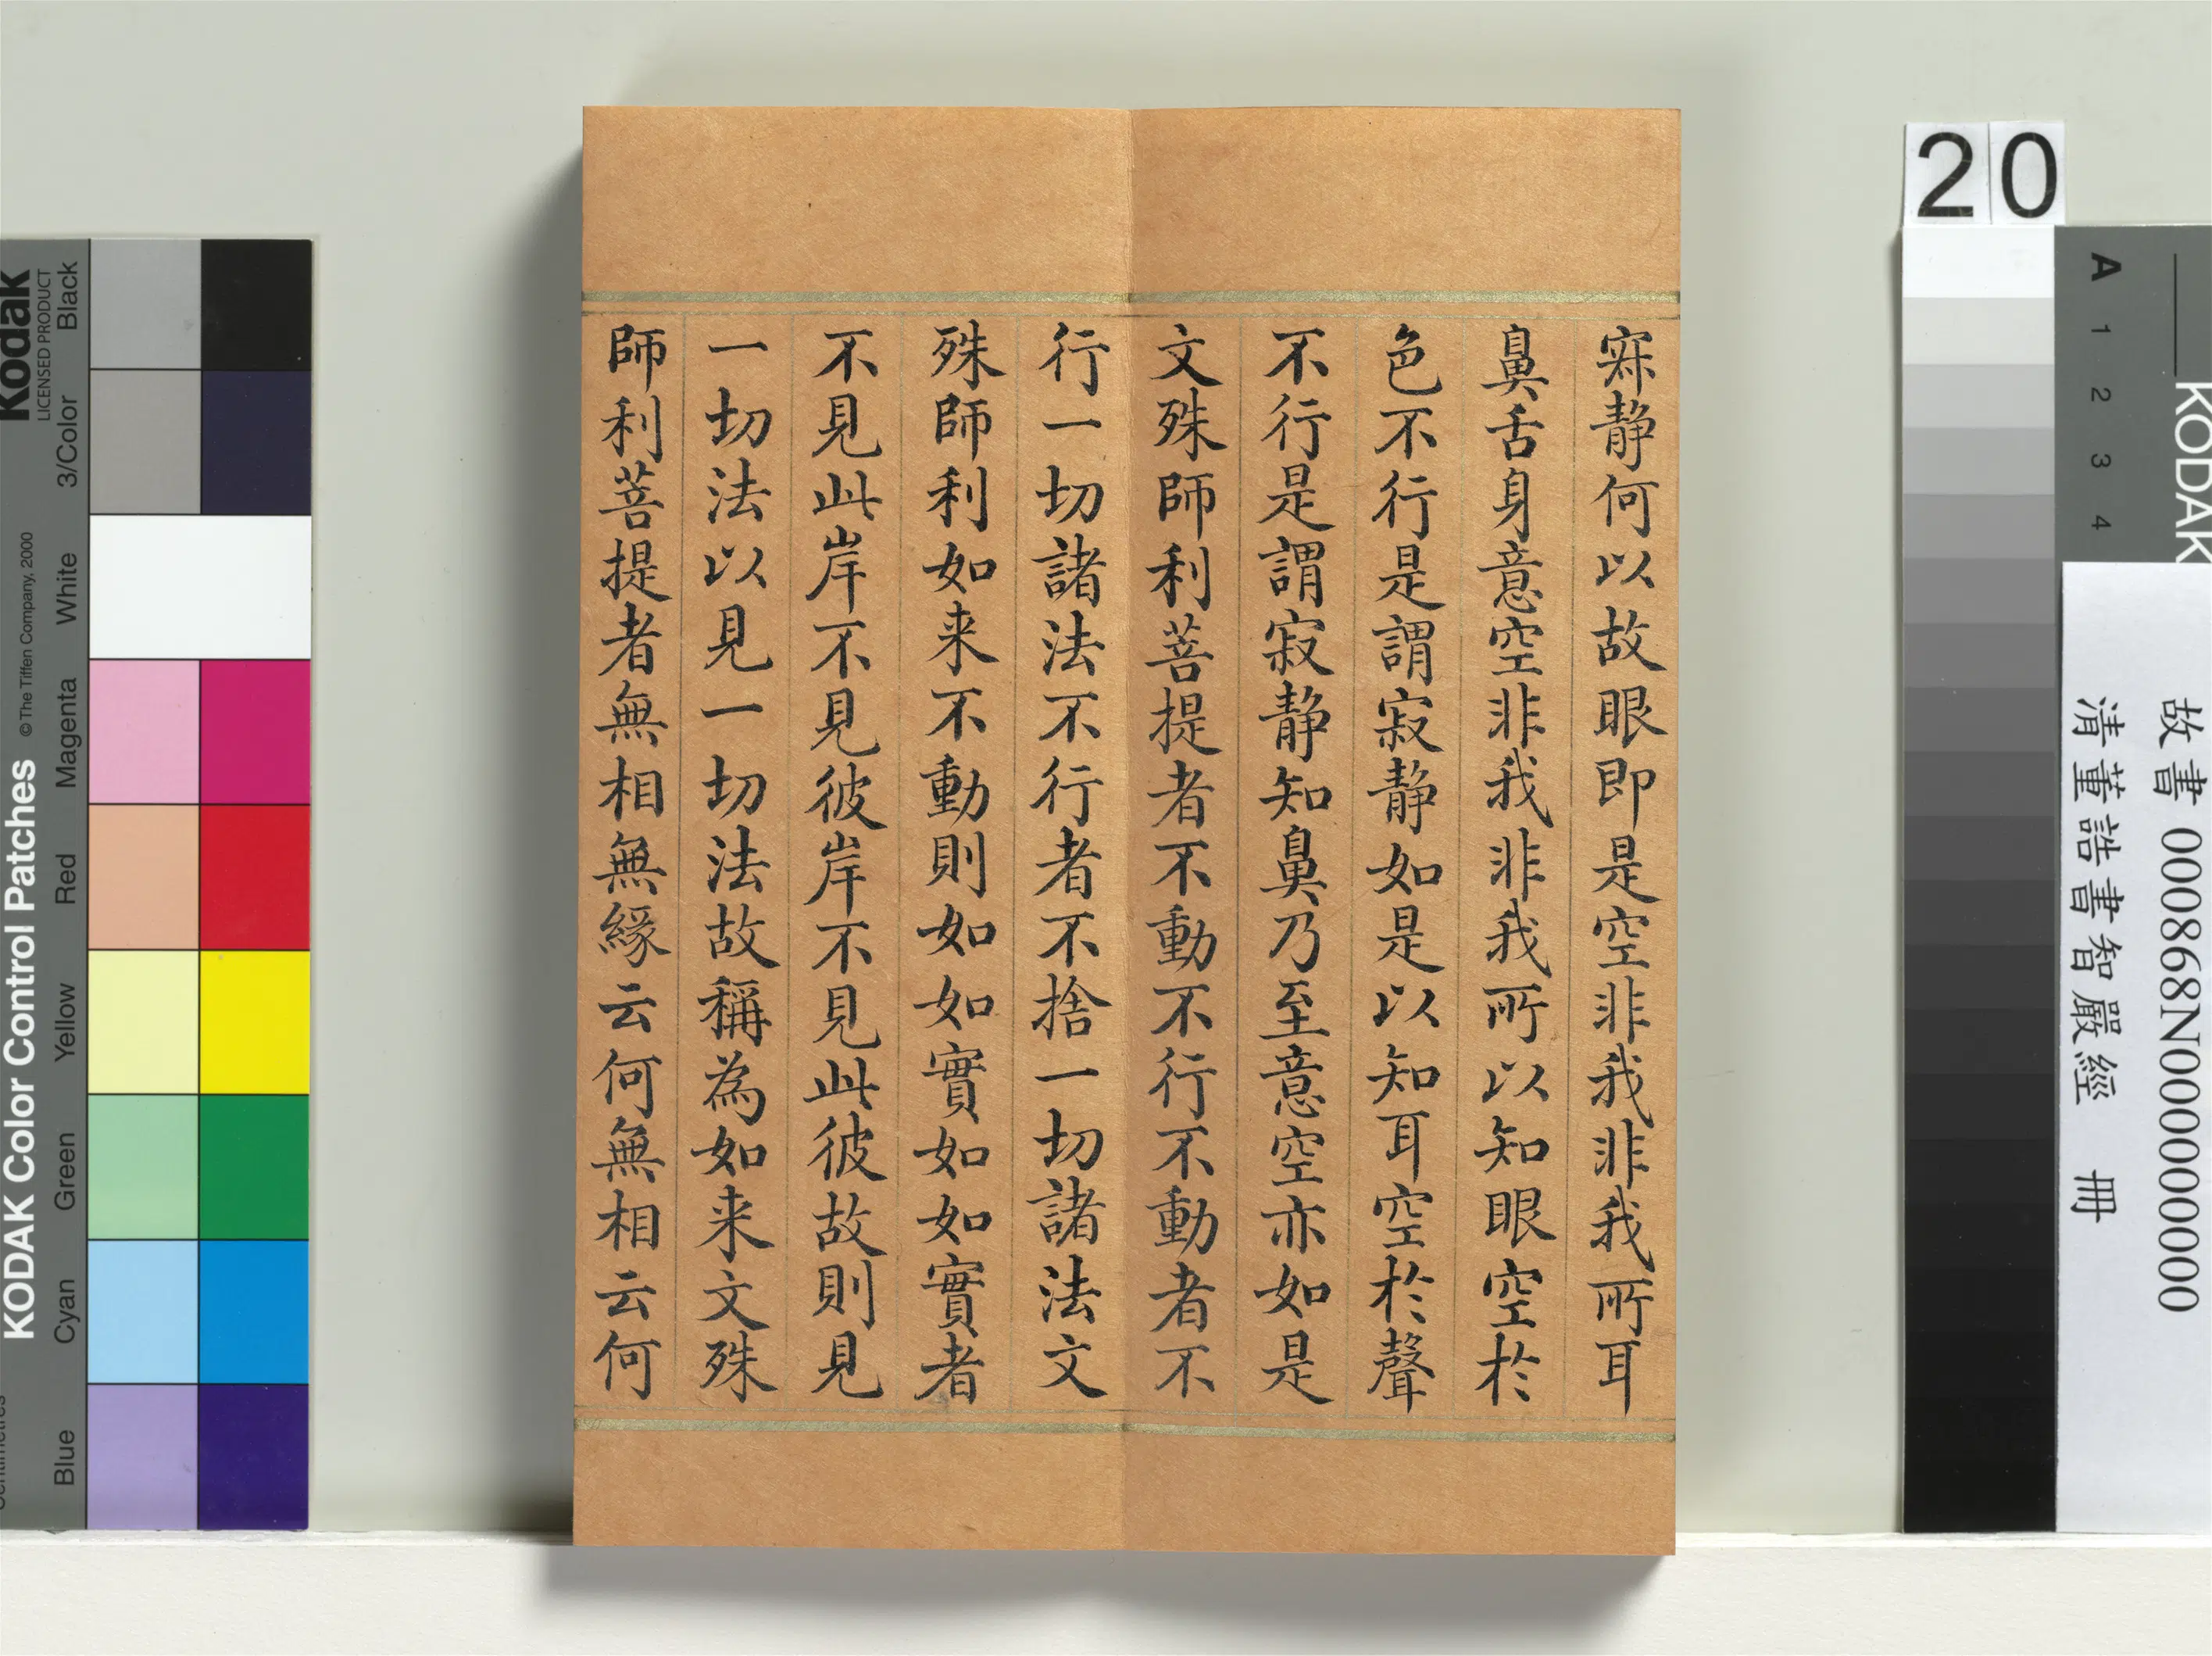 寂静何以故眼即是空非我非我所耳
鼻舌身意空非我非我所以知眼空於
色不行是謂寂静如是以知耳空於聲
不行是謂寂静知鼻乃至意空亦如是
文殊師利菩提者不動不行不動者不
行一切諸法不行者不捨一切諸法文
殊師利如来不動則如如實如如實者
不見此岸不見彼岸不見此彼故則見
一切法以見一切法故稱為如来文殊
師利菩提者無相無緣云何無相云何
20
KODAK
A 1 2 3 4
故書 000868N000000000
清董誥書智嚴經 冊
Kodak
LICENSED PRODUCT
KODAK Color Control Patches
© The Tiffen Company, 2000
Blue
Cyan
Green
Yellow
Red
Magenta
White
3/Color
Black